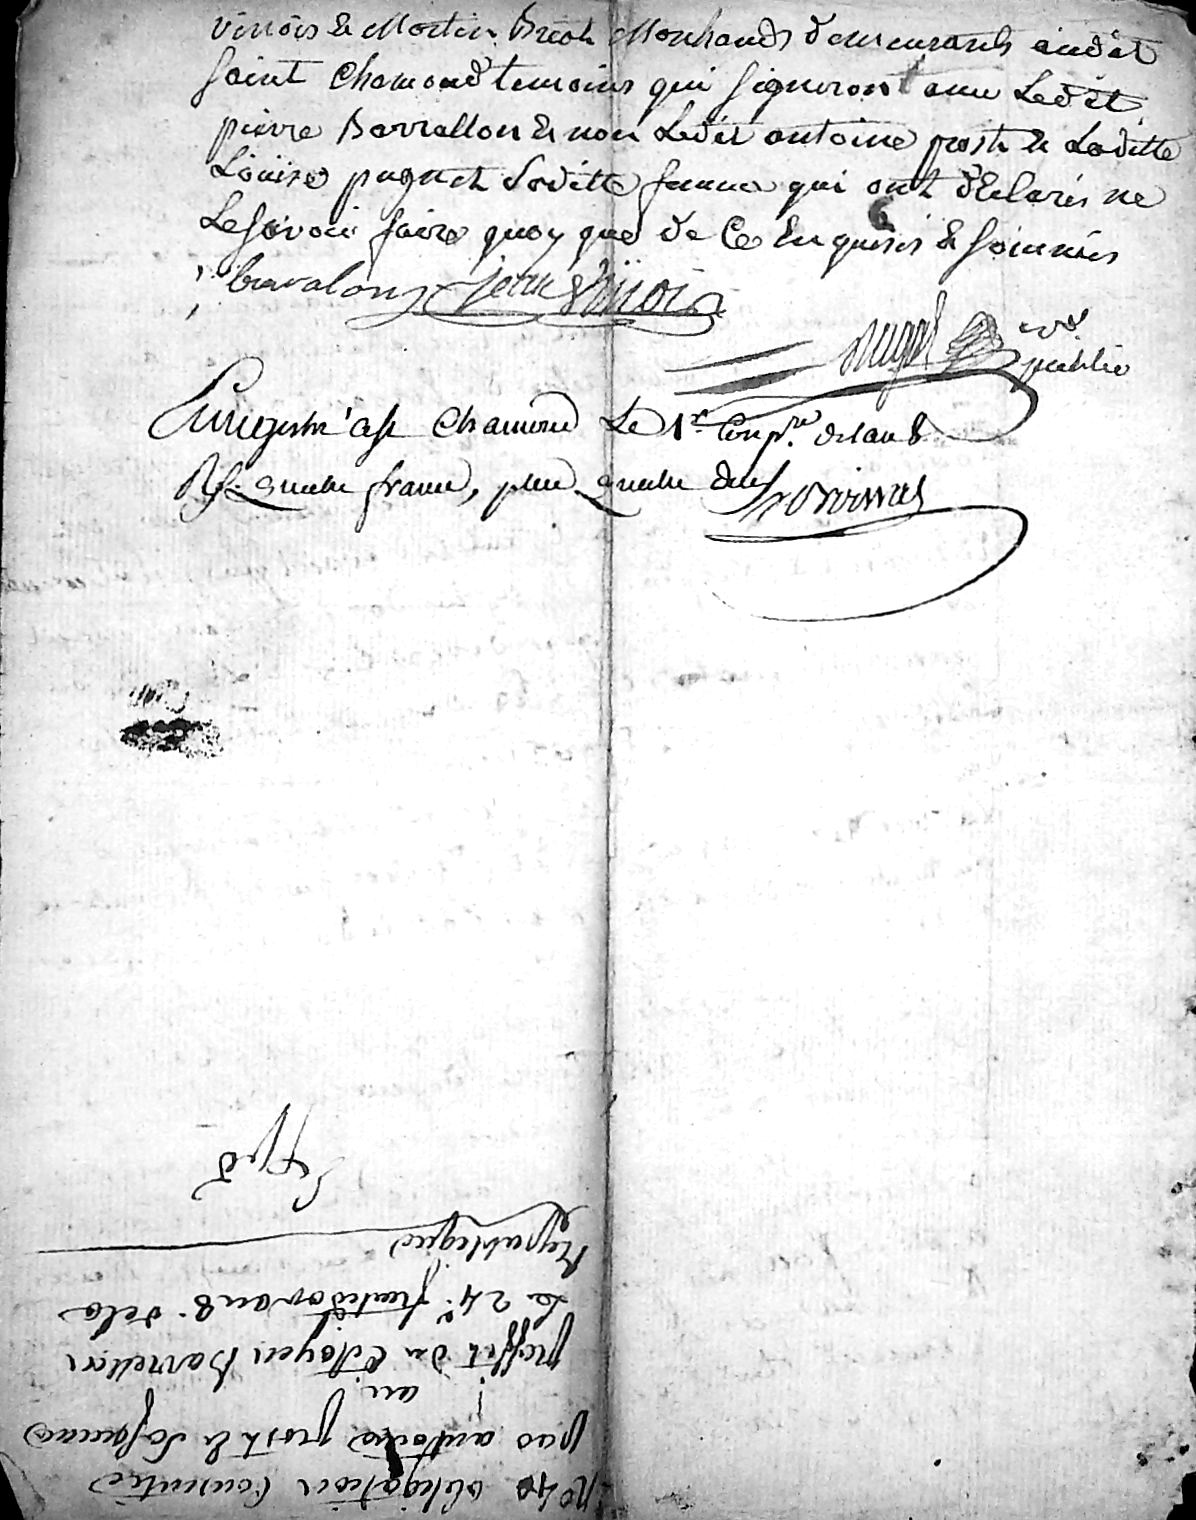 vinois & Martin Marchands demeurants audit
Saint Chamond temoins qui signeront avec Ledit
pierre Barrallon & non Ledit antoine prost & Laditte
Louise saditte femme qui ont déclarés ne
Le savoir faire quoy que de Ce Enquis & sommés
baralon Jean vinois
public
Enregistré a St Chamond Le 1er Comp.re de l'an 8
quatre francs, plus quatre
No 40 obligation Consentie
par antoine prost & sa femme
au
proffit du Citoyen Barrallon
Le 24 fructidor an 8 de la
Republique